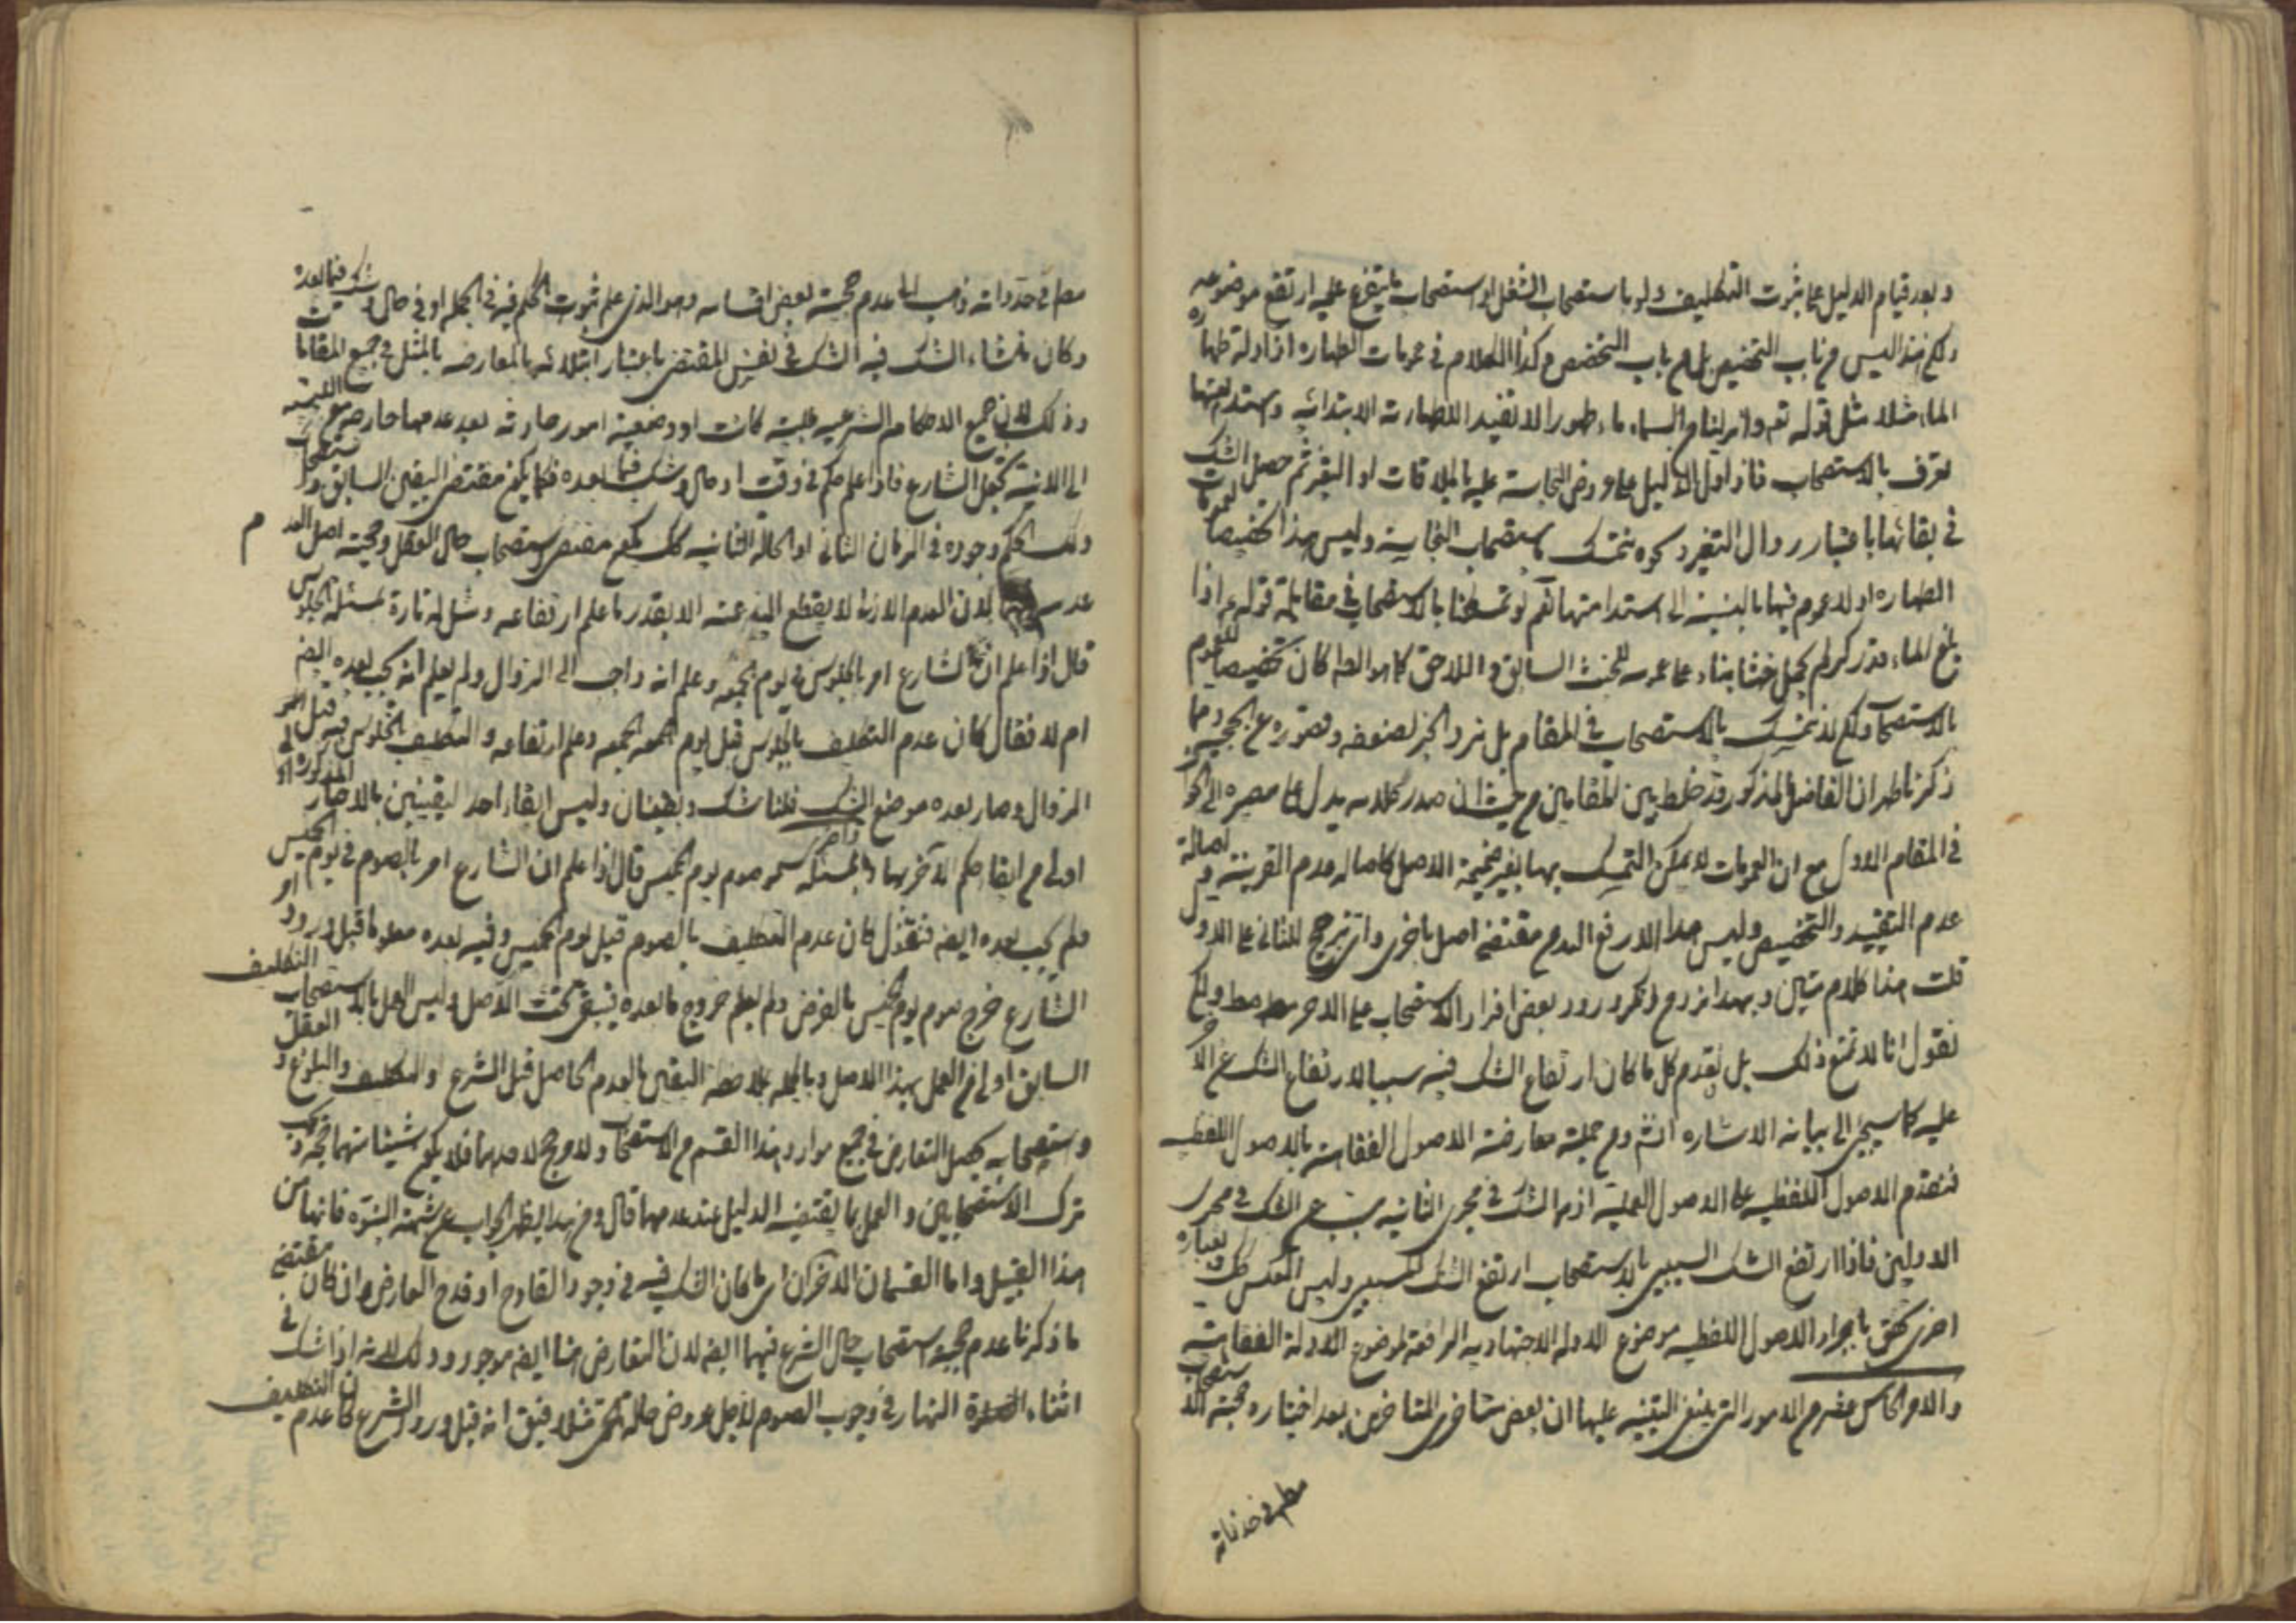 وبعد قيام الدليل على ثبوت التكليف ولو باستصحاب الشغل او استصحاب ما يتفرع عليه ارتفع موضوعه
ولكن هذا ليس من باب التخصيص بل من باب التخصص وكذا الكلام في عمومات الطهارة اذ ادلة طهارة
الماء مثلا مثل قوله تع وانزلنا من السماء ماء طهورا لا تفيد الا طهارته الابتدائيه واستدامتها
تعرف بالاستصحاب فاذا دل الدليل على عروض النجاسة عليه بالملاقات او التغير ثم حصل الشك
في بقائها باعتبار زوال التغير ونحوه نتمسك باستصحاب النجاسة وليس هذا تخصيصا لعمومات
الطهاره اذ لا عموم فيها بالنسبة الى استدامتها نعم لو تمسكنا بالاستصحاب في مقابلة قوله ع اذا
بلغ الماء قدر كر لم يحمل خبثا بناء على عمومه للخبث السابق واللاحق كما هو كان تخصيصا للعموم
بالاستصحاب ولكن لا نتمسك بالاستصحاب في المقام بل نرد الخبر لضعفه وقصوره عن الحجية ومما
ذكرنا ظهر ان الفاضل المذكور قد خلط بين المقامين من حيث ان صدر كلامه يدل على مصيره الى الجواز
في المقام الاول مع ان العمومات لا يمكن التمسك بها بغير ضميمة الاصل كاصالة عدم القرينة واصالة
عدم التقييد والتخصيص وليس هذا الا رفع اليد عن مقتضى اصل باخرى وترجيح للثاني على الاول
قلت هذا كلام متين وبهذا ورود بعض افراد الاستصحاب على الاخر ولكن
نقول انا لا نمنع ذلك بل نقدم كل ما كان ارتفاع الشك فيه سببا لارتفاع الشك عن الاخر
عليه كما سيجئ الى بيانه الاشاره انشم ومن جملته معارضة الاصول الفقاهته بالاصول اللفظيه
فنقدم الاصول اللفظيه على الاصول العمليه اذ الشك في مجرى الثانيه مسبب عن الشك في مجرى
الاولين فاذا ارتفع الشك السببي بالاستصحاب ارتفع الشك المسببي وليس العكس كك وبعبارة
اخرى نحقق باجراء الاصول اللفظيه موضوع الادله الاجتهاديه الرافعة لموضوع الادلة الفقاهتيه
والامر الخامس عشر من الامور التي ينبغي التنبيه عليها ان بعض متاخرى المتاخرين بعد اختياره حجية الاستصحاب
مطم في حد ذاته
مطم في حد ذاته ذهب الى عدم حجية بعض اقسامه وهو الذي علم ثبوت الحكم فيه في الجمله او في حال وشك فيما بعده
وكان منشاء الشك فيه الشك في نفس المقتضى باعتبار ابتلائه بالمعارضه بالمثل في جميع المقامات
وذلك لان جميع الاحكام الشرعيه طلبية كانت او وضعية امور حادثه بعد عدمها
فاذا علم حكم في وقت او حال وشك فيما بعده فكما يكون مقتضى اليقين السابق واستصحاب
ذلك الحكم وجوده في الزمان الثاني او الحالة الثانيه كك يكون مقتضى استصحاب حال العقل وحجية اصل العدم
لان العدم الازلي لا يقطع اليد عنه الا بقدر ما علم ارتفاعه ومثل له تارة بمسئله الجلوس
قال اذا علم ان الشارع امر بالجلوس في يوم الجمعه وعلم انه واجب الى الزوال ولم يعلم انه يجب بعده ايضا
ام لا فقال كان عدم التكليف بالجلوس قبل يوم الجمعه وعلم ارتفاعه والتكليف بالجلوس فيه قبل
الزوال وصار بعده موضع الشك فهنا شك ويقينان وليس ابقاء احد اليقينين
اولى من ابقاء حكم الاخر واخرى بمسئله صوم يوم الخميس قال اذا علم ان الشارع امر بالصوم في يوم الخميس
ولم يجب بعده ايضا فنقول كان عدم التكليف بالصوم قبل يوم الخميس وفيه بعده معلوما قبل ورود امر
الشارع خرج صوم يوم الخميس بالفرض ولم يعلم خروج ما بعده فيبقى تحت الاصل وليس العمل باستصحاب التكليف
السابق اولى من العمل بهذا الاصل وبالجمله بملاحظة اليقين بالعدم الحاصل قبل الشرع والتكليف والبلوغ والعقل
واستصحابه يحصل التعارض في جميع موارد هذا القسم من الاستصحاب ولا مرجح لاحدهما فلا يكون شيئا منهما حجه ويجب
ترك الاستصحابين والعمل بما يقتضيه الدليل عند عدمها قال ومن هذا يظهر الجواب عن شبهة النبوة فانها من
هذا القبيل واما القسمان الاخران اى ما كان الشك فيه في وجود القادح او قدح العارض وان كان مقتضى
ما ذكرنا عدم حجيه استصحاب حال الشرع فيهما ايضا لان التعارض هنا ايضا موجود وذلك لانه اذا شك في
اثناء النهار في وجوب الصوم لاجل عروض حالة مثلا فنق انه قبل ورود الشرع كان عدم التكليف